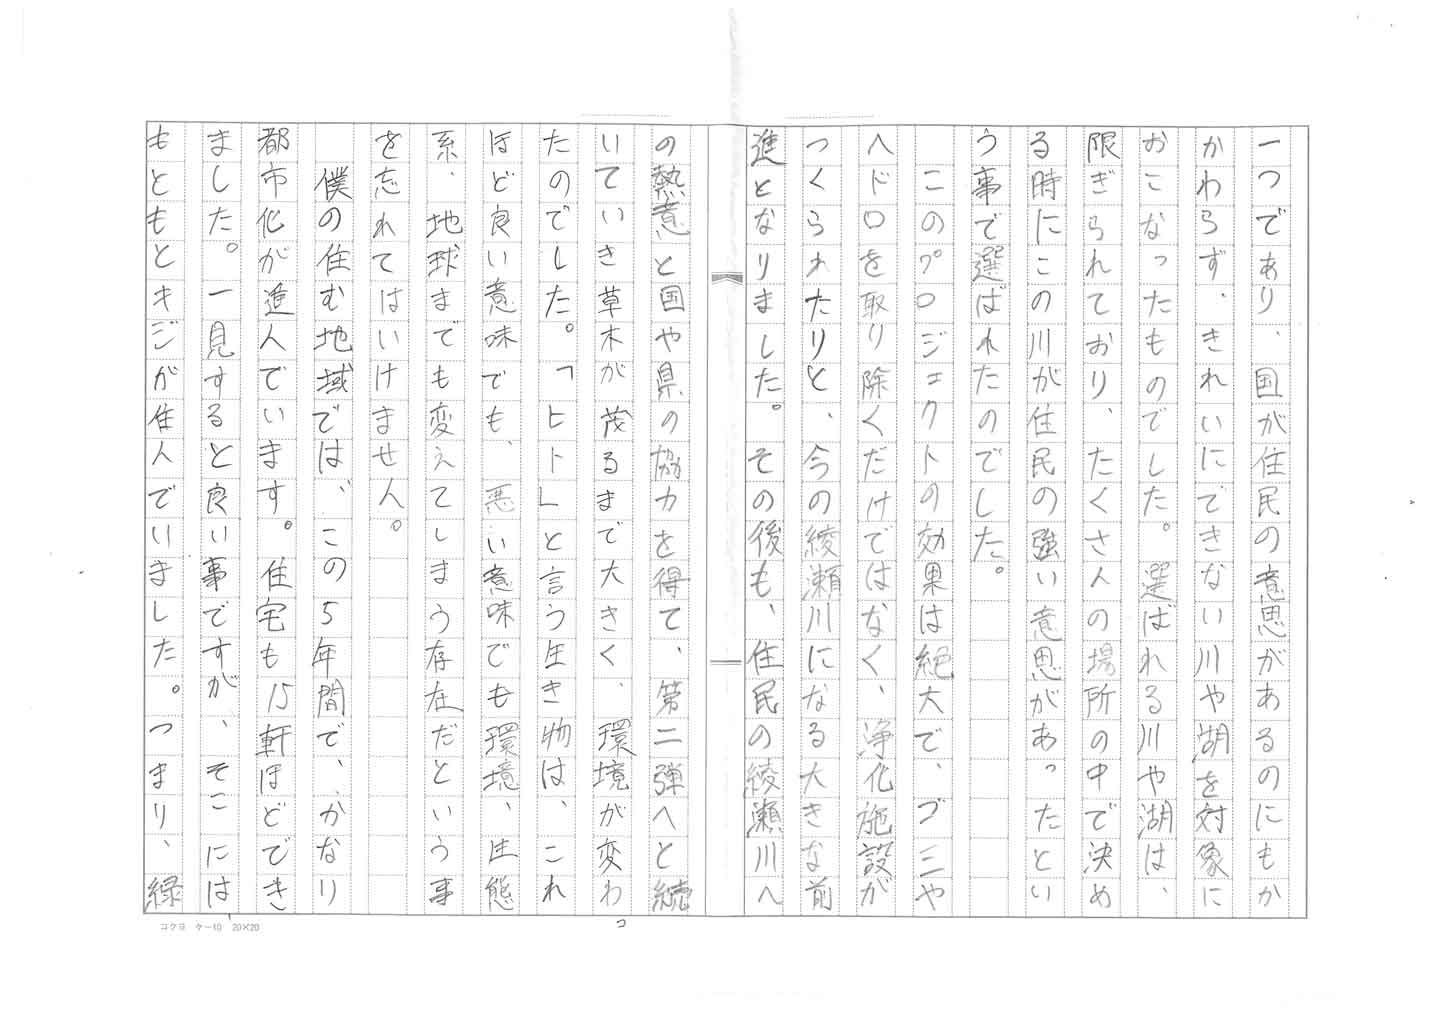 一つであり、国が住民の意思があるのにもか
かわらず、きれいにできない川や湖を対象に
おこなったものでした。選ばれる川や湖は、
限ぎられており、たくさんの場所の中で決め
る時にこの川が住民の強い意思があったとい
う事で選ばれたのでした。
このプロジェクトの効果は絶大で、ゴミや
ヘドロを取り除くだけではなく、浄化施設が
つくられたりと、今の綾瀬川になる大きな前
進となりました。その後も、住民の綾瀬川へ
の熱意と国や県の協力を得て、第二弾へと続
いていき草木が茂るまで大きく、環境が変わ
たのでした。「ヒト」と言う生き物は、これ
ほど良い意味でも、悪い意味でも環境、生態
系、地球までも変えてしまう存在だという事
を忘れてはいけません。
僕の住む地域では、この5年間で、かなり
都市化が進んでいます。住宅も15軒ほどでき
ました。一見すると良い事ですが、そこには
もともとキジが住んでいました。つまり、緑
コクヨ ケー10 20×20
2